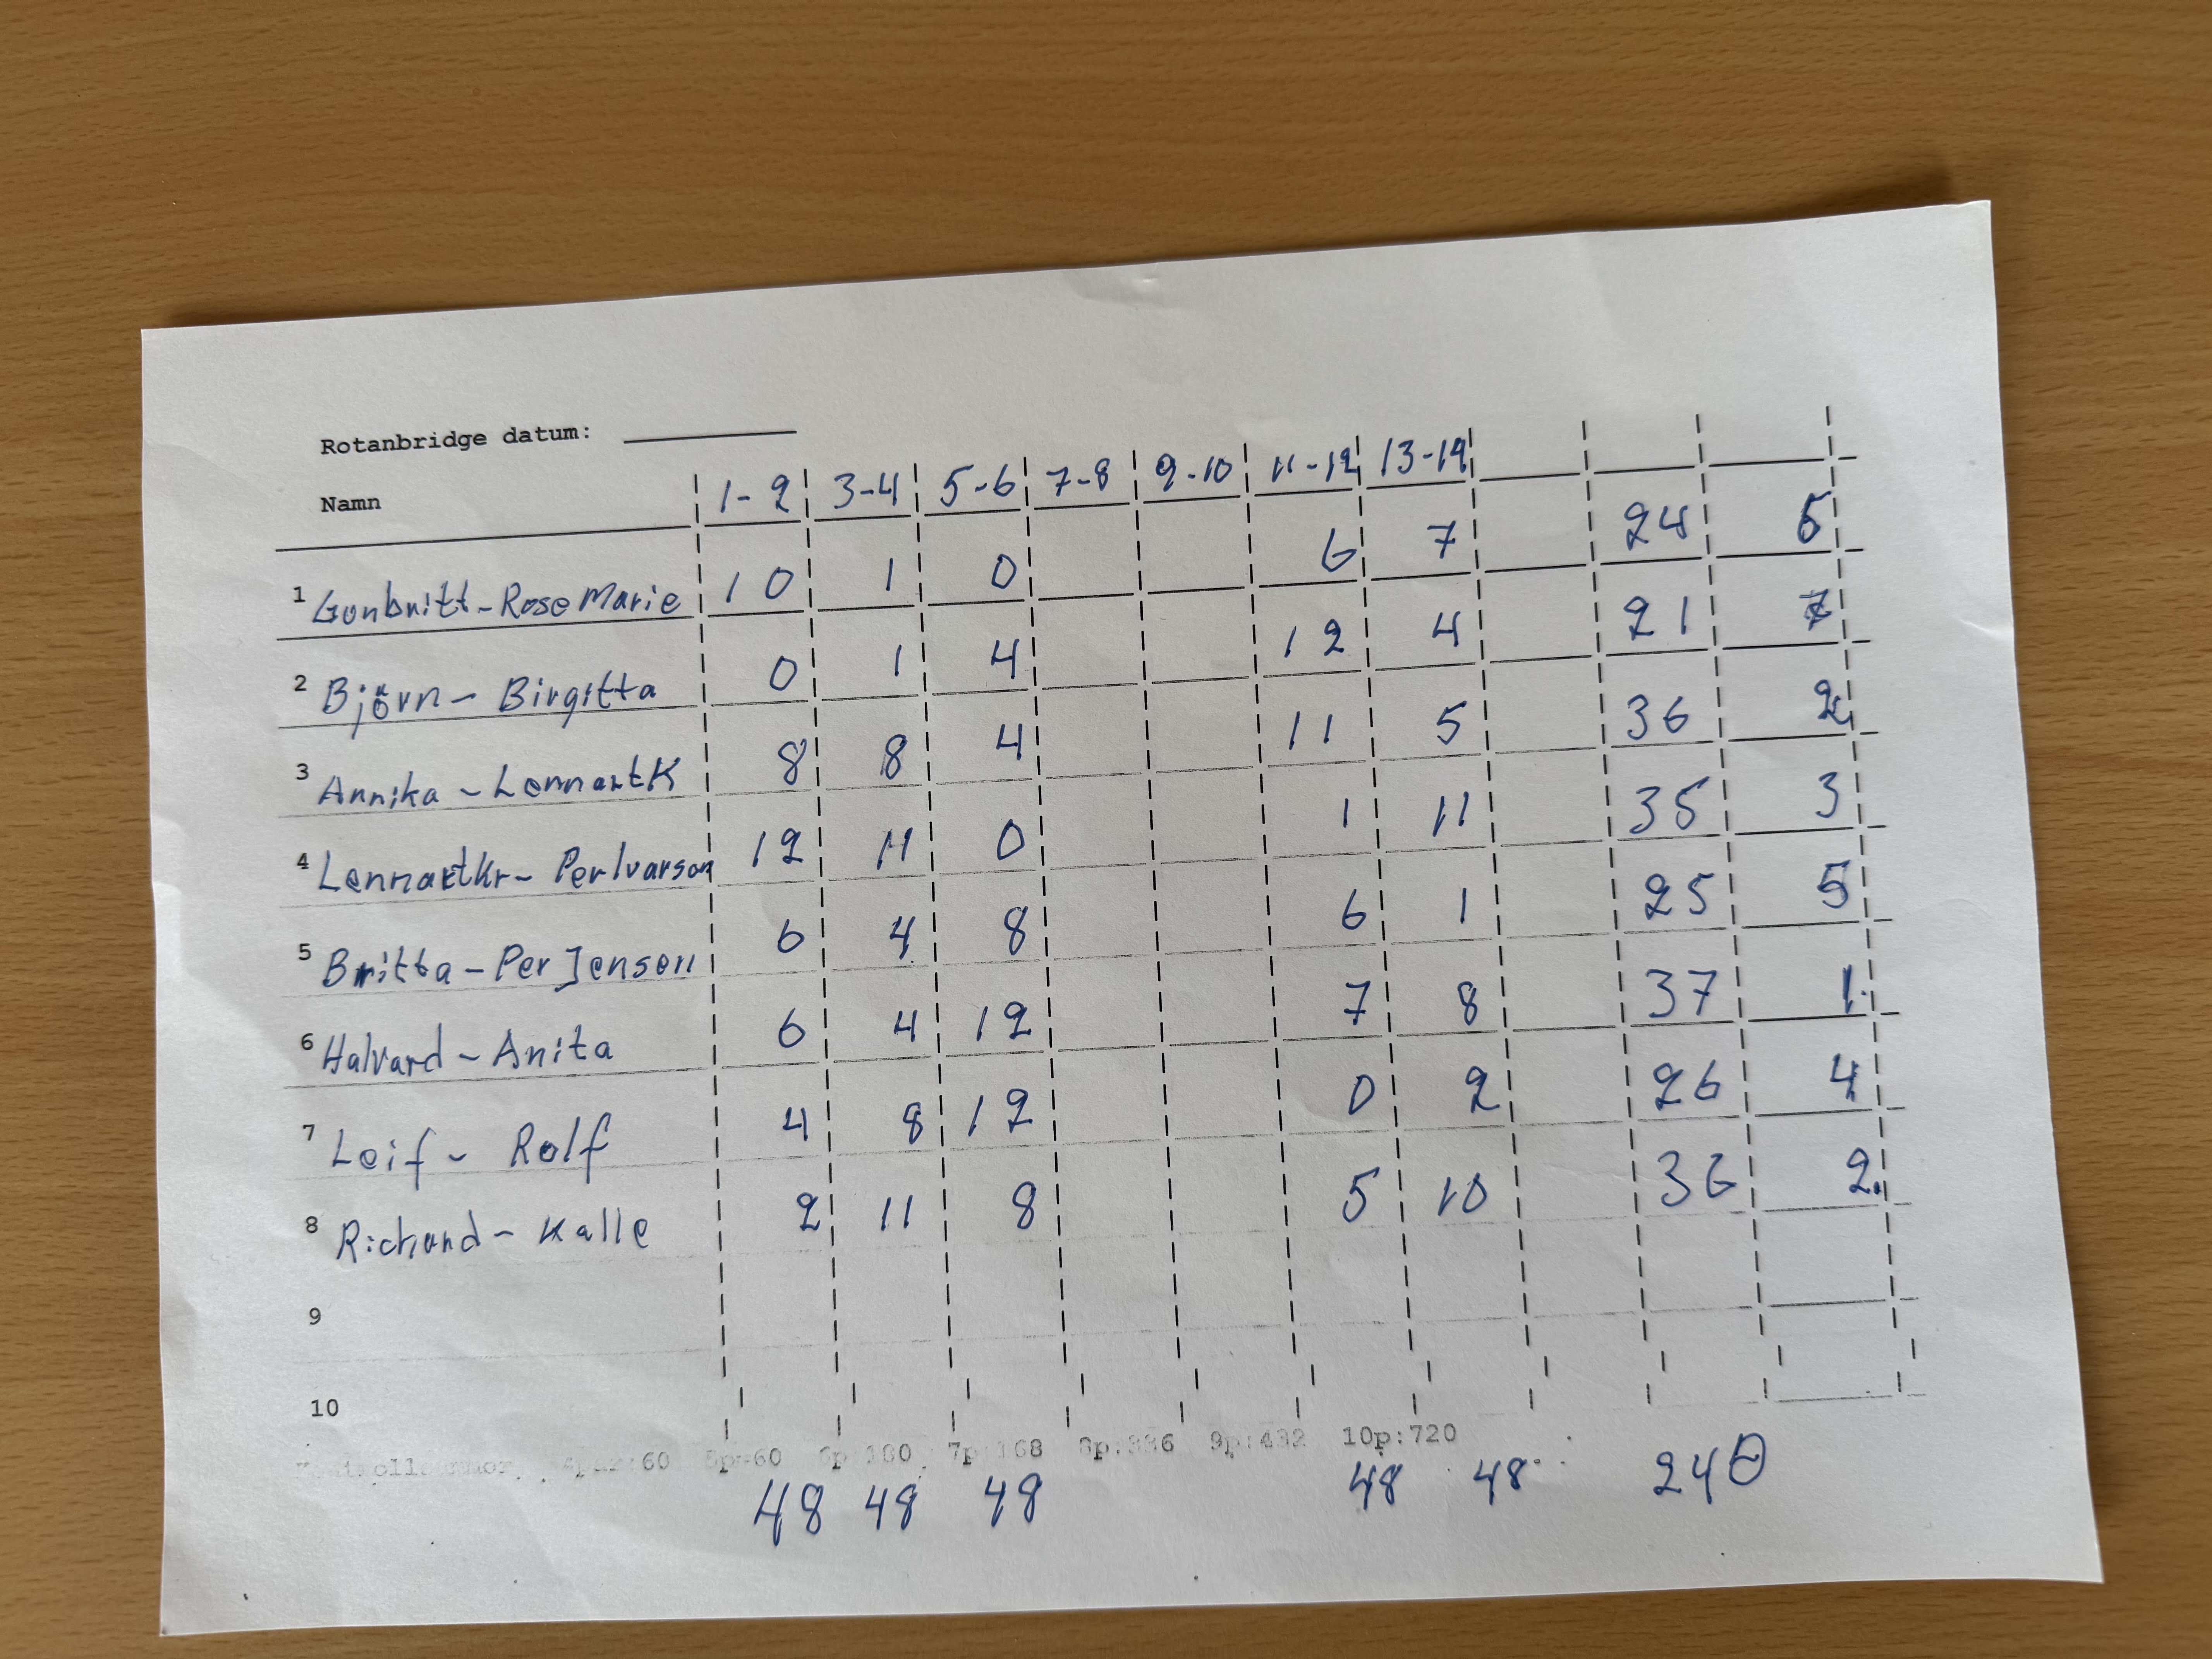 Rotanbridge datum:
Namn 1-2 3-4 5-6 7-8 9-10 11-12 13-14
1 Gunbritt-RoseMarie 10 1 0 6 7 24 5
2 Björn-Birgitta 0 1 4 12 4 21 7
3 Annika-LennartK 8 8 4 11 5 36 2
4 LennartKr-PerIvarson 12 11 0 1 11 35 3
5 Britta-Per Jenson 6 4 8 6 1 25 5
6 Halvard-Anita 6 4 12 7 8 37 1
7 Leif-Rolf 4 8 12 0 2 26 4
8 Richard-Kalle 2 11 8 5 10 36 2
9
10
5p=60 6p:180 7p:168 8p:336 9p:432 10p:720
48 48 48 48 48 240